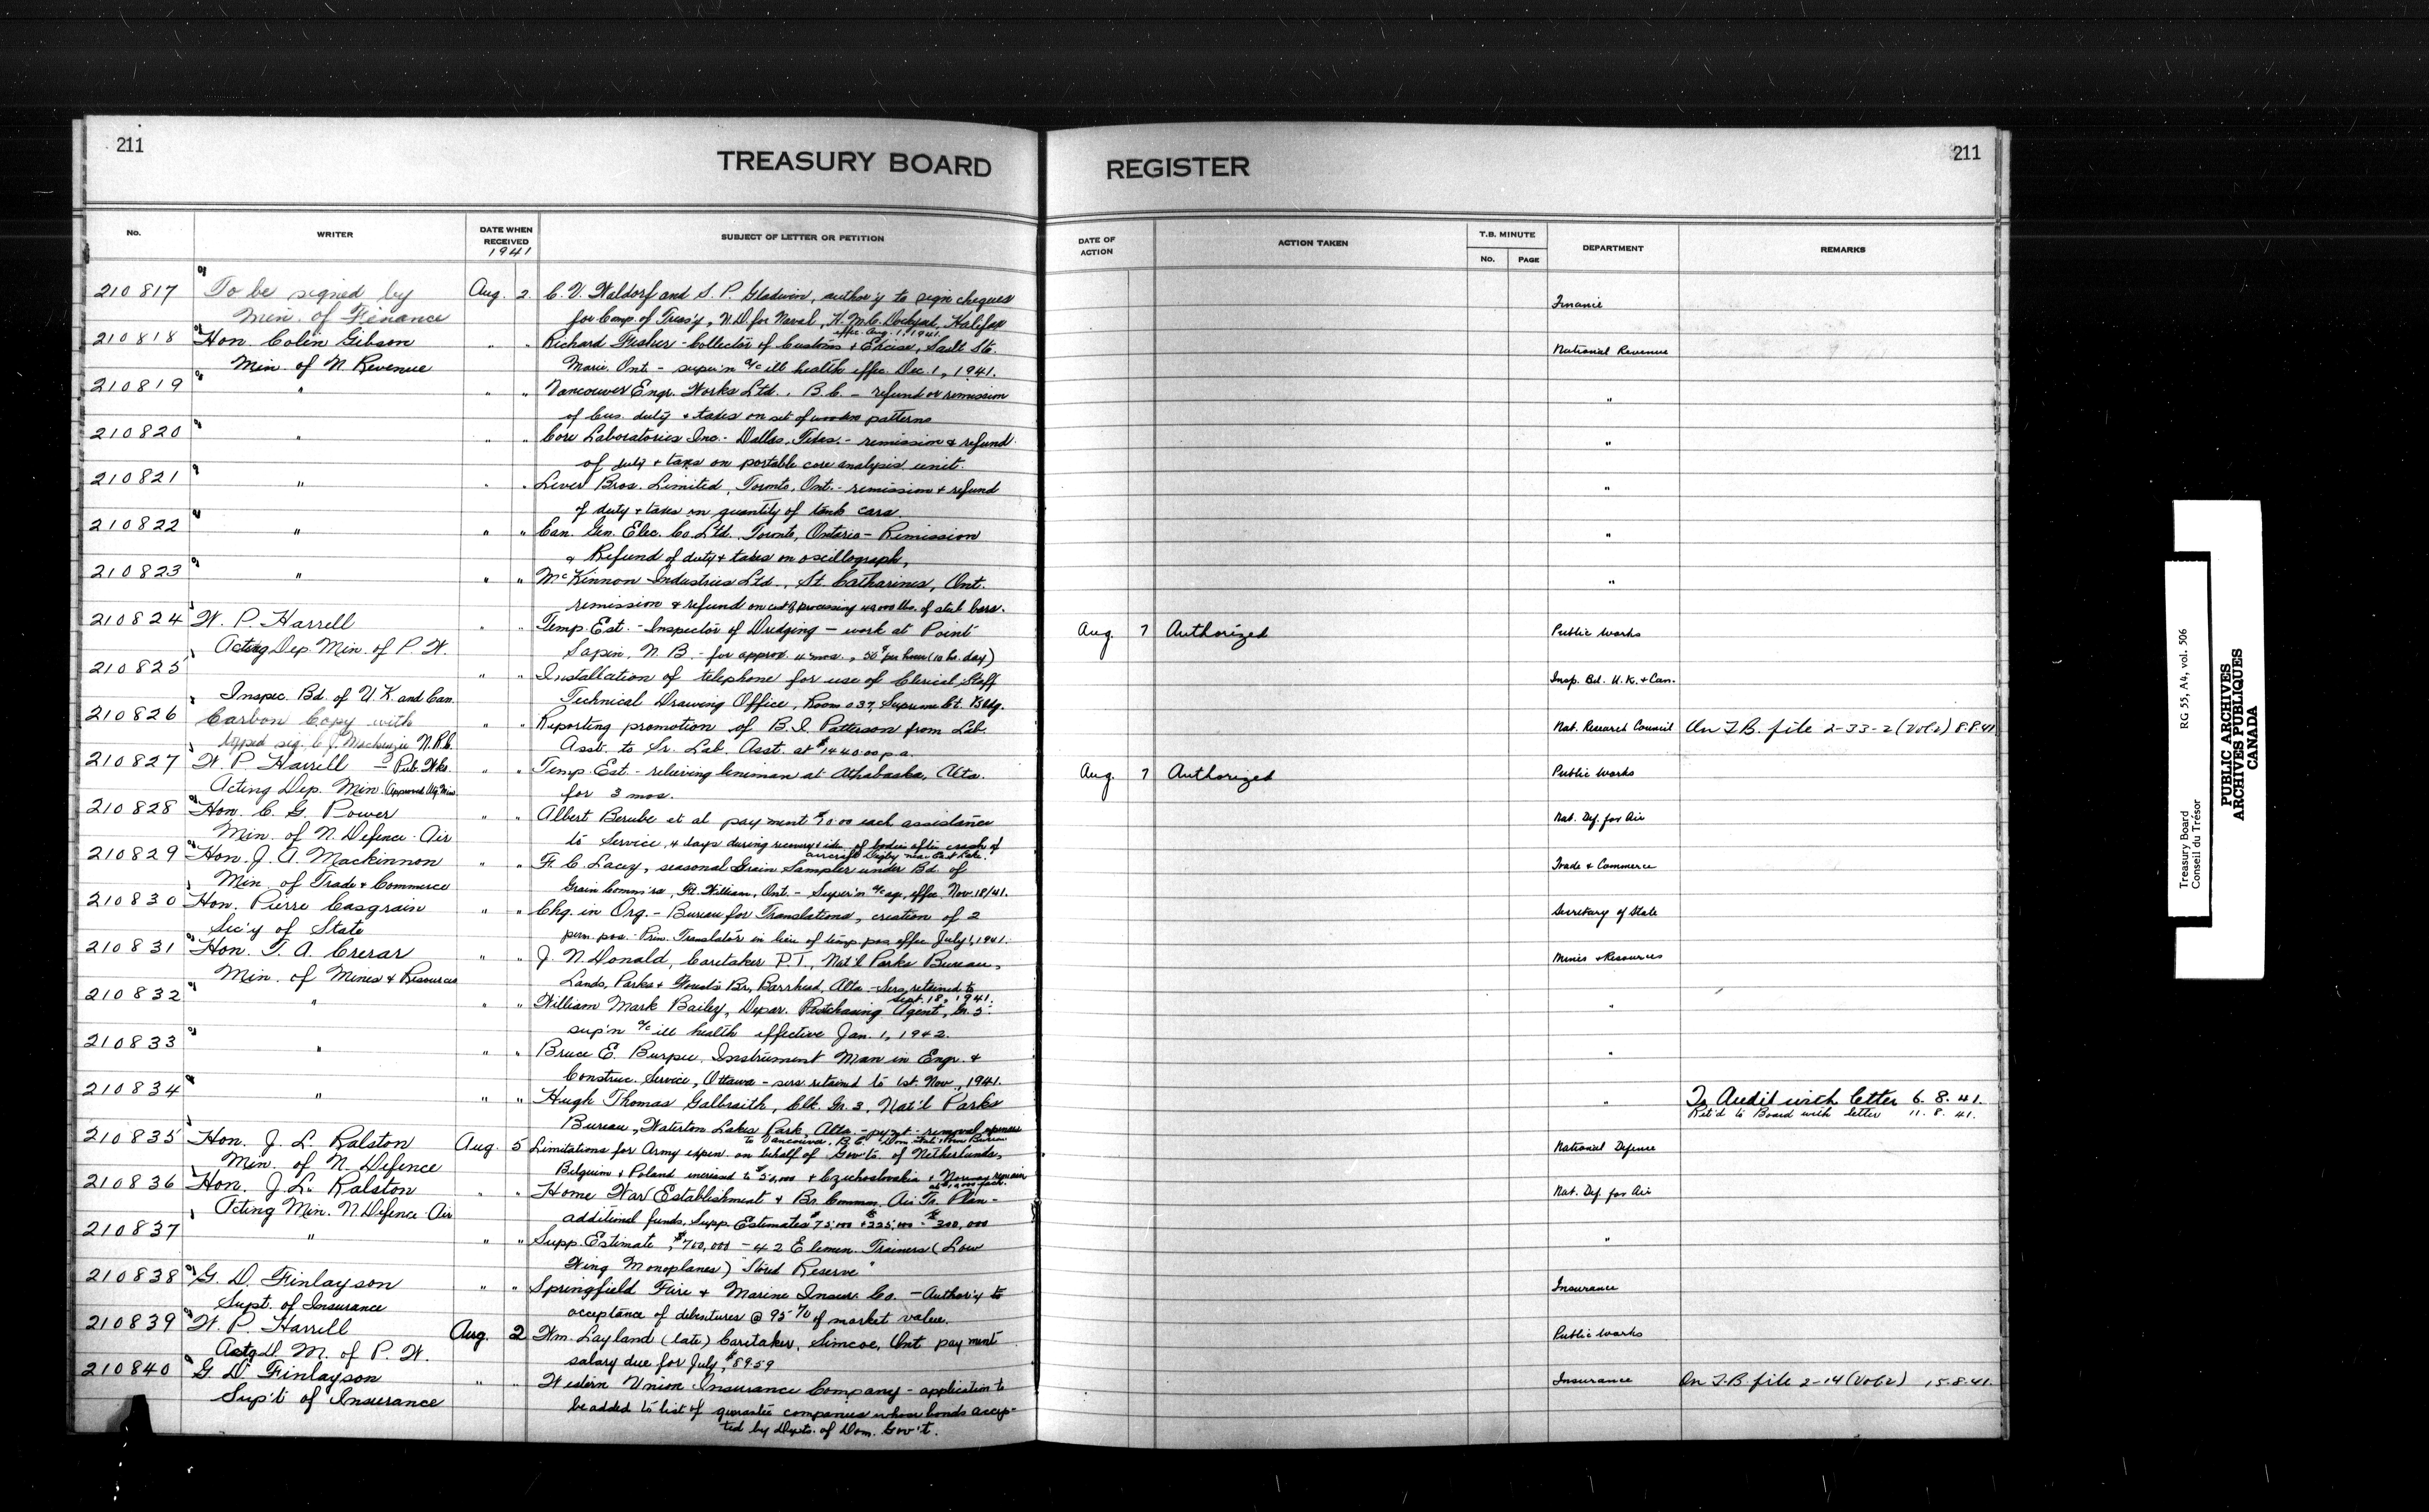 211
TREASURY BOARD
No.
WRITER
DATE WHEN RECEIVED
1941
SUBJECT OF LETTER OR PETITION
210817 To be signed by Aug. 2 C. V. Waldorf and S. P. Gladwin, author'y to sign cheques
Min. of Finance for Comp. of Treas'y, N.D. for Naval, H.M.C. Dockyard, Halifax
effec. Aug. 1, 1941.
210818 Hon. Colin Gibson " " Richard Fisher - Collector of Customs & Excise, Sault Ste.
Min. of N. Revenue Marie, Ont. - super'n a/c ill health effec. Dec. 1, 1941.
210819 " " " Vancouver Engr. Works Ltd., B.C. - refund or remission
of Cus. duty & taxes on set of wooden patterns
210820 " " " Core Laboratories Inc. - Dallas, Texas. - remission & refund
of duty & taxes on portable core analysis unit.
210821 " " " Lever Bros. Limited, Toronto, Ont. - remission & refund
of duty & taxes on quantity of tank cars.
210822 " " " Can. Gen. Elec. Co. Ltd. Toronto, Ontario - Remission
& Refund of duty & taxes on oscillograph,
210823 " " " McKinnon Industries Ltd., St. Catharines, Ont.
remission & refund on cost of processing 40,000 lbs. of steel bars.
210824 W. P. Harrell " " Temp. Est. - Inspector of Dredging - work at Point
Acting Dep. Min. of P. W. Sapin, N. B. - for approx. 4 mos., 50¢ per hour (10 hr. day)
210825 " " Installation of telephone for use of Clerical Staff
Inspec. Bd. of U.K. and Can. Technical Drawing Office, Room 037, Supreme Ct. Bldg.
210826 Carbon Copy with " " Reporting promotion of B. I. Patterson from Lab.
typed sig. C. J. Mackenzie N.R.C. Asst. to Sr. Lab. Asst. at $1440.00 p.a.
210827 W. P. Harrell Pub. Wks. " " Temp Est. - relieving lineman at Athabaska, Alta.
Acting Dep. Min. Approved Atg. Min. for 3 mos.
210828 Hon. C. G. Power " " Albert Berube et al payment $10.00 each assistance
Min. of N. Defence - Air to Service, 4 days during recovery & iden. of bodies after crash of
aircraft Digby near East Lake.
210829 Hon. J. A. Mackinnon " " F. C. Lacey, seasonal Grain Sampler under Bd. of
Min. of Trade & Commerce Grain Comm'rs, Ft. William, Ont. - Super'n a/c age, effec. Nov. 18/41.
210830 Hon. Pierre Casgrain " " Chg. in Org. - Bureau for Translations, creation of 2
Sec'y of State perm. pos. - Prin. Translators in lieu of temp. pos. effec July 1, 1941.
210831 Hon. T. A. Crerar " " J. N. Donald, Caretaker P.T., Nat'l Parks Bureau,
Min. of Mines & Resources Lands, Parks & Forests Br., Barrhead, Alta. - Sers. retained to
Sept. 18, 1941.
210832 " " " William Mark Bailey, Depar. Purchasing Agent, Gr. 5.
sup'n a/c ill health effective Jan. 1, 1942.
210833 " " " Bruce E. Burpee, Instrument Man in Engr. &
Construc. Service, Ottawa - sers. retained to 1st. Nov., 1941.
210834 " " " Hugh Thomas Galbraith, Clk. Gr. 3, Nat'l Parks
Bureau, Waterton Lakes Park, Alta. - paymt. - removal expenses
to Vancouver, B.C. Bureau
210835 Hon. J. L. Ralston Aug. 5 Limitations for Army expen. on behalf of Gov'ts. of Netherlands,
Min. of N. Defence Belguim & Poland increased to $50,000 & Czechoslovakia & Norway remain
210836 Hon. J. L. Ralston " " Home War Establishment & Br. Common. Air Tr. Plan -
Acting Min. N. Defence - Air additional funds, Supp. Estimates $75,000 + $225,000 - $300,000
210837 " " " Supp. Estimate, $700,000 - 42 Elemen. Trainers (Low
Wing Monoplanes) "Stored Reserve"
210838 G. D. Finlayson " " Springfield Fire & Marine Insur. Co. - Author'y to
Supt. of Insurance acceptance of debentures @ 95% of market value.
210839 W. P. Harrell Aug. 2 Wm. Layland (late) Caretaker, Simcoe, Ont payment
Actg D. M. of P. W. salary due for July, $89.59
210840 G. D. Finlayson " " Western Union Insurance Company - application to
Sup't of Insurance be added to list of guarantee companies whose bonds accep-
ted by Depts. of Dom. Gov't.
REGISTER
211
DATE OF ACTION
ACTION TAKEN
T.B. MINUTE
No.
PAGE
DEPARTMENT
REMARKS
Finance
National Revenue
"
"
"
"
"
Aug. 7 Authorized Public Works
Insp. Bd. U.K. & Can.
Nat. Research Council On T.B. file 2-33-2 (Vol. 2) 8.8.41
Aug. 7 Authorized Public Works
Nat. Def. for Air
Trade & Commerce
Secretary of State
Mines & Resources
"
"
" To Audit with letter 6. 8. 41.
Ret'd to Board with letter 11. 8. 41.
National Defence
Nat. Def. for Air
"
Insurance
Public Works
Insurance On T.B. file 2-14 (Vol. 2) 15.8.41.
Treasury Board RG 55, A4, vol. 506
Conseil du Trésor
PUBLIC ARCHIVES
ARCHIVES PUBLIQUES
CANADA